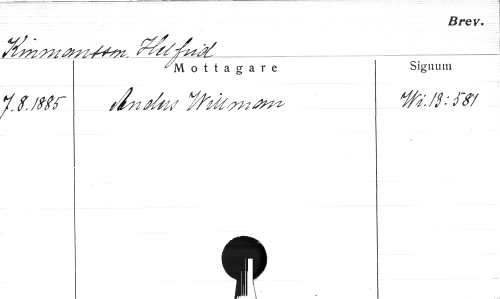 Brev.
Kinmansson, Helfrid
Mottagare Signum
7.8.1885 Anders Willman Wi.19:581